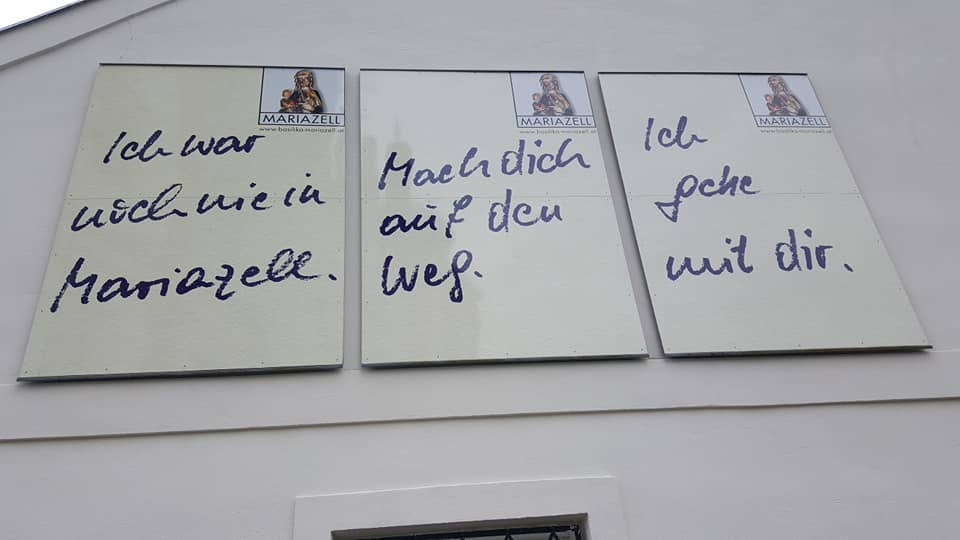 MARIAZELL
www.basilika-mariazell.at
Ich war
noch nie in
Mariazell.
MARIAZELL
www.basilika-mariazell.at
Mach dich
auf den
Weg.
MARIAZELL
www.basilika-mariazell.at
Ich
gehe
mit dir.